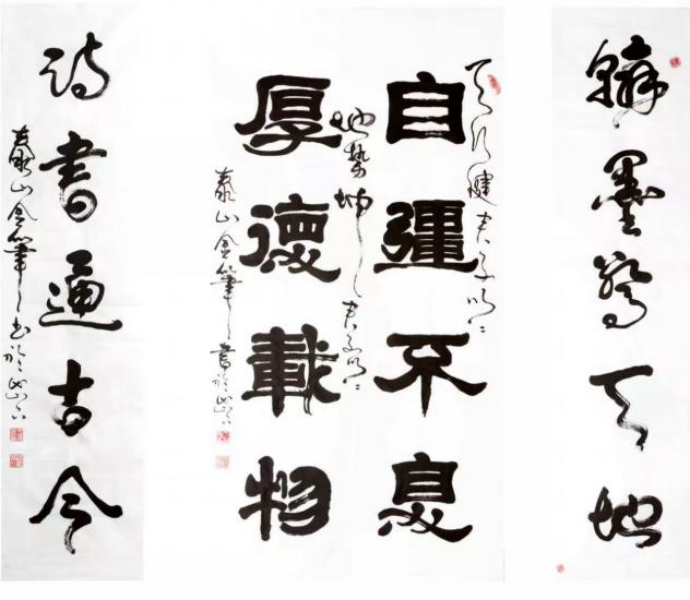 翰墨驚天地
天行健君子以
自彊不息
地勢坤君子以
厚德載物
泰山金筆書於
詩書通古今
泰山金筆書於